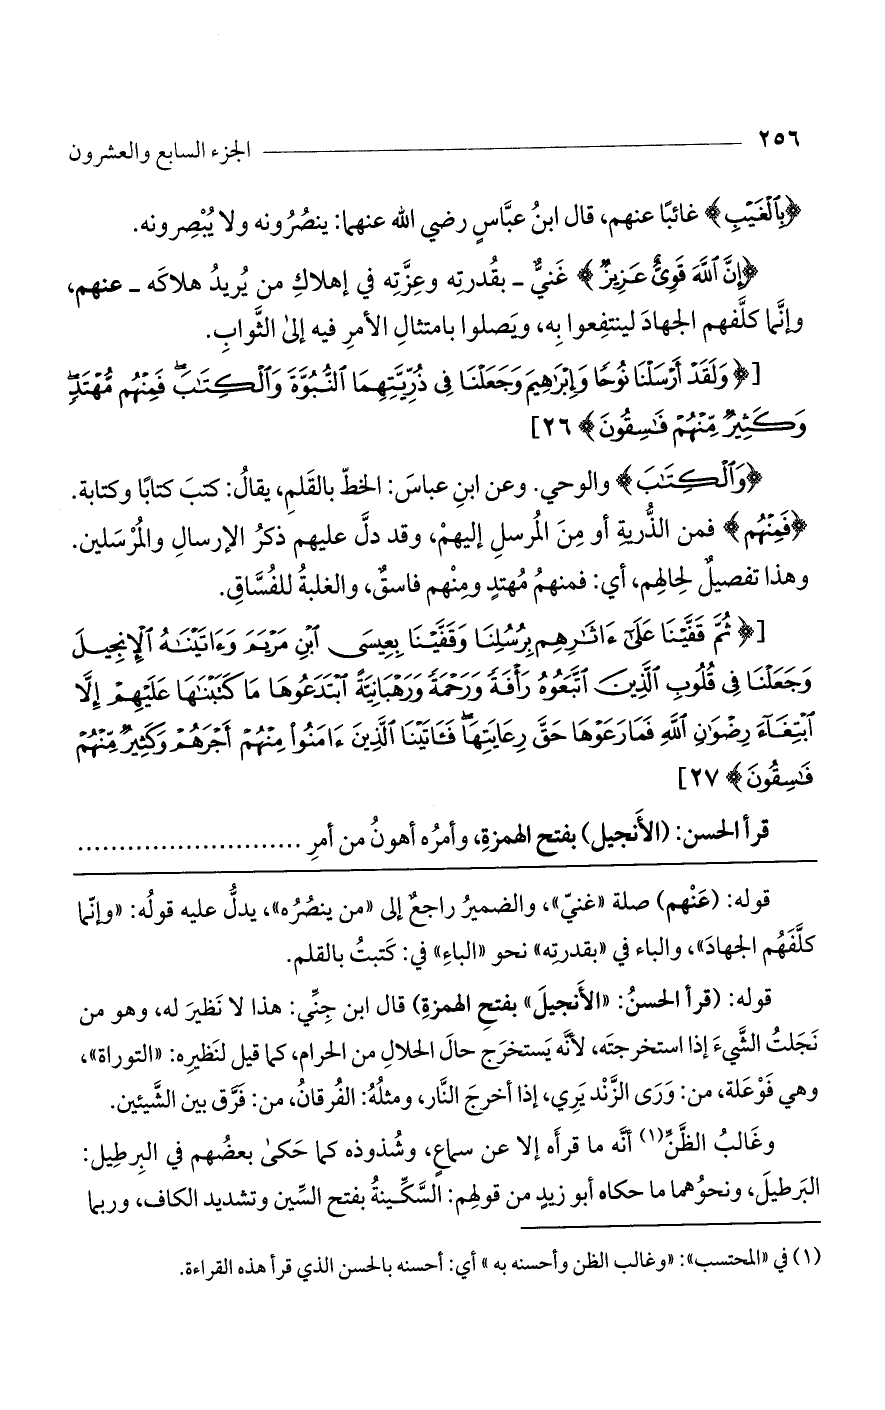 ٢٥٦ الجزء السابع والعشرون
﴿بِٱلْغَيْبِ﴾ غائبًا عنهم، قال ابنُ عبَّاسٍ رضي الله عنهما: ينصُرُونه ولا يُبْصِرونه.
﴿إِنَّ ٱللَّهَ قَوِىٌّ عَزِيزٌ﴾ غَنيٌّ ـ بقُدرتِه وعِزَّتِه في إهلاكِ من يُريدُ هلاكَه ـ عنهم،
وإنَّما كلَّفهم الجهادَ لينتفِعوا بِه، ويَصلوا بامتثالِ الأمرِ فيه إلىٰ الثَّوابِ.
[﴿وَلَقَدْ أَرْسَلْنَا نُوحًا وَإِبْرَٰهِيمَ وَجَعَلْنَا فِى ذُرِّيَّتِهِمَا ٱلنُّبُوَّةَ وَٱلْكِتَٰبَ ۖ فَمِنْهُم مُّهْتَدٍ ۖ
وَكَثِيرٌ مِّنْهُمْ فَٰسِقُونَ﴾ ٢٦]
﴿وَٱلْكِتَٰبَ﴾ والوحي. وعن ابنِ عباسَ: الخطّ بالقَلمِ، يقالُ: كتبَ كتابًا وكتابة.
﴿فَمِنْهُم﴾ فمن الذُّريةِ أو مِنَ المُرسلِ إليهِمْ، وقد دلَّ عليهم ذكرُ الإرسالِ والمُرْسَلين.
وهذا تفصيلٌ لِحالِهِم، أي: فمنهمُ مُهتدٍ ومِنْهم فاسقٌ، والغلبةُ للفُسَّاقِ.
[﴿ثُمَّ قَفَّيْنَا عَلَىٰٓ ءَاثَٰرِهِم بِرُسُلِنَا وَقَفَّيْنَا بِعِيسَى ٱبْنِ مَرْيَمَ وَءَاتَيْنَٰهُ ٱلْإِنجِيلَ
وَجَعَلْنَا فِى قُلُوبِ ٱلَّذِينَ ٱتَّبَعُوهُ رَأْفَةً وَرَحْمَةً وَرَهْبَانِيَّةً ٱبْتَدَعُوهَا مَا كَتَبْنَٰهَا عَلَيْهِمْ إِلَّا
ٱبْتِغَآءَ رِضْوَٰنِ ٱللَّهِ فَمَا رَعَوْهَا حَقَّ رِعَايَتِهَا ۖ فَـَٔاتَيْنَا ٱلَّذِينَ ءَامَنُوا۟ مِنْهُمْ أَجْرَهُمْ وَكَثِيرٌ مِّنْهُمْ
فَٰسِقُونَ﴾ ٢٧]
قرأ الحسن: (الأَنجيل) بفتح الهمزةِ، وأمرُه أهونُ من أمرِ ...........................
قوله: (عَنْهم) صلة «غنيّ»، والضميرُ راجعٌ إلى «من ينصُرُه»، يدلُّ عليه قولُه: «وإنّما
كلَّفَهُم الجهادَ»، والباء في «بقدرتِه» نحو «الباءِ» في: كَتبتُ بالقلم.
قوله: (قرأ الحسنُ: «الأَنجيلَ» بفتحِ الهمزةِ) قال ابن جِنّي: هذا لا نَظيرَ له، وهو من
نَجَلتُ الشَّيءَ إذا استخرجتَه، لأنَّه يَستخرَج حالَ الحلالِ من الحرام، كما قيل لنَظيرِه: «التوراة»،
وهي فَوْعَلة، من: وَرَى الزَّند يَرِي، إذا أخرجَ النَّار، ومثلُهُ: الفُرقانُ، من: فَرَّق بين الشَّيئين.
وغَالبُ الظَّنِّ(١) أنَّه ما قرأه إلا عن سماعٍ، وشُذوذه كما حَكىٰ بعضُهم في البِرطِيل:
البَرطيلَ، ونحوُهما ما حكاه أبو زيدٍ من قولهِم: السَّكِّينةُ بفتح السِّين وتشديد الكاف، وربما
(١) في «المحتسب»: «وغالب الظن وأحسنه به» أي: أحسنه بالحسن الذي قرأ هذه القراءة.